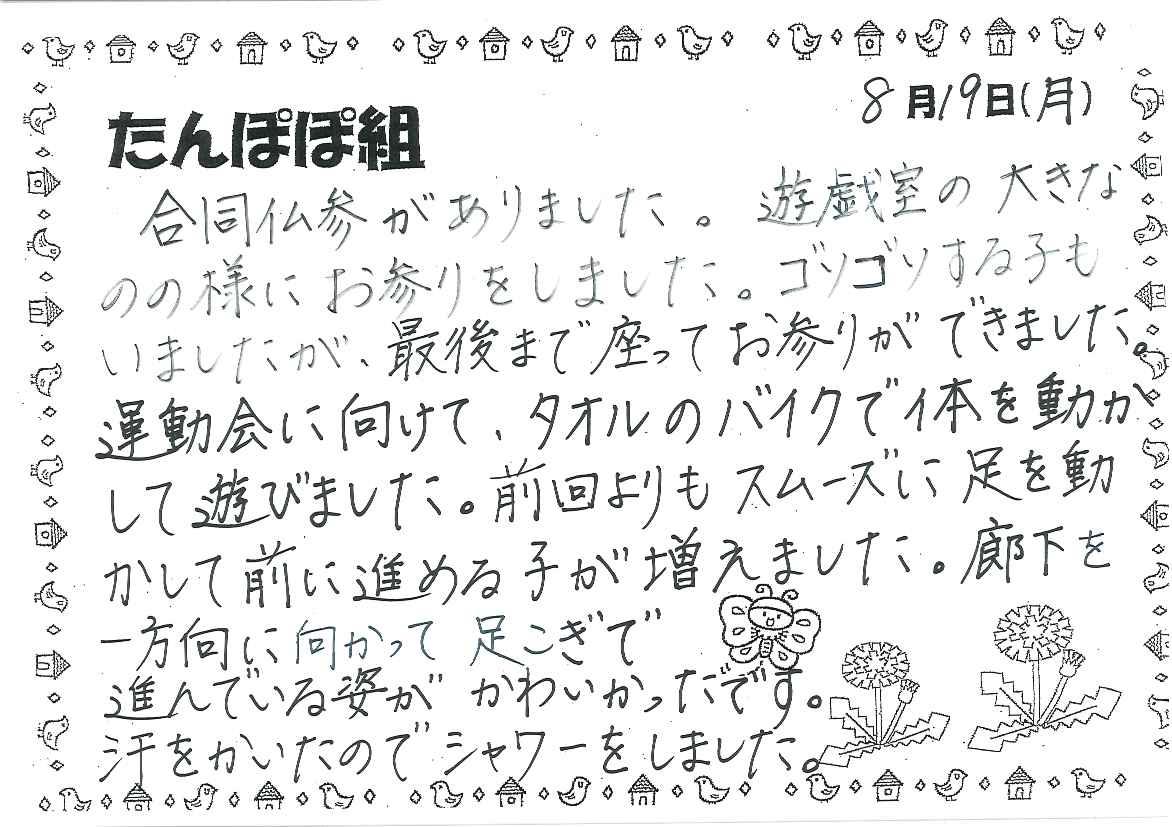 8月19日(月)
たんぽぽ組
合同仏参がありました。遊戯室の大きな
のの様にお参りをしました。ゴソゴソする子も
いましたが、最後まで座ってお参りができました。
運動会に向けて、タオルのバイクで体を動か
して遊びました。前回よりもスムーズに足を動
かして前に進める子が増えました。廊下を
一方向に向かって足こぎで
進んでいる姿がかわいかったです。
汗をかいたのでシャワーをしました。